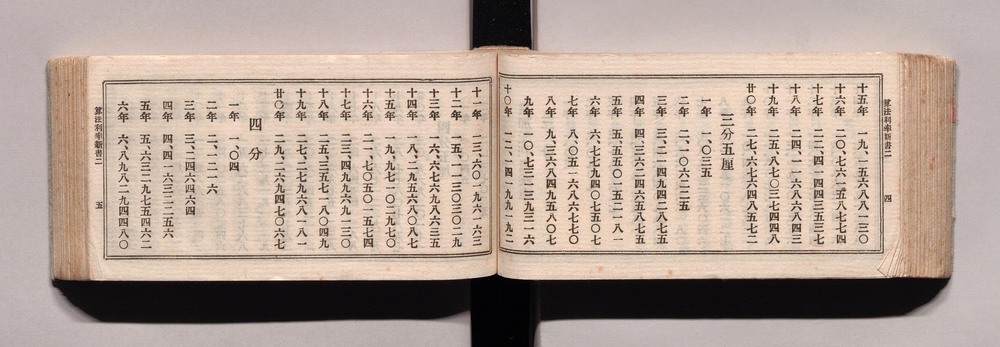 算法利率新書二
四
十五年 一九、一五六八八一三〇
十六年 二〇、七六一五八七七四
十七年 二二、四一四四三五三七
十八年 二四、一一六八六八四三
十九年 二五、八七〇三七四四八
廿〇年 二七、六七六四八五七二
三分五厘
一年 一、〇三五
二年 二、一〇六二二五
三年 三、二一四九四二八七五
四年 四、三六二四六五八七五
五年 五、五五〇一五二一八
六年 六、七七九四〇七五〇
七年 八、〇五一六八六七七
八年 九、三六八四九五八〇
九年 一〇、七三一三九三一六
十〇年 一二、一四一九九一九二
十一年 一三、六〇一九六一六三
十二年 一五、一一三〇三〇二九
十三年 一六、六七六九八六三五
十四年 一八、二九五六八〇八七
十五年 一九、九七一〇二九七〇
十六年 二一、七〇五〇一五七四
十七年 二三、四九九六九一三〇
十八年 二五、三五七一八〇四九
十九年 二七、二七九六八一八一
廿〇年 二九、二六九四七〇六七
四分
一年 一、〇四
二年 二、一二一六
三年 三、二四六四六四
四年 四、四一六三二二五六
五年 五、六三二九七五四六二
六年 六、八九八二九四四八〇
算法利率新書二
五